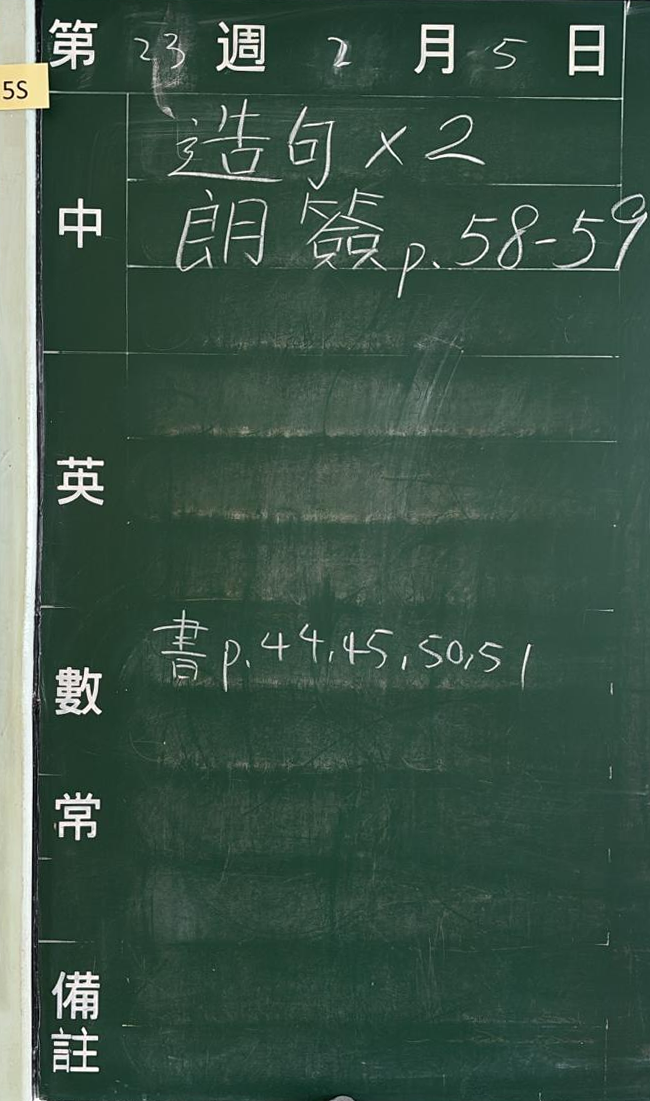 第 23 週 2 月 5 日
5S
中
造句 x 2
朗 簽 p. 58-59
英
數
書 p. 44, 45, 50, 51
常
備註